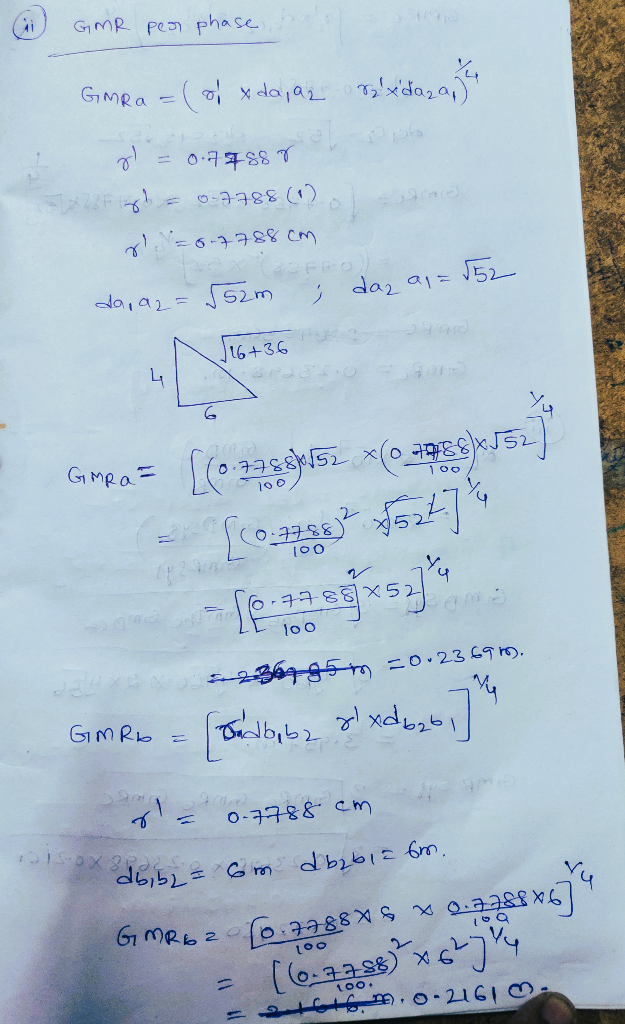 (ii) GMR per phase
GMRa = (r1' x da1a2 r2' x da2a1)^1/4
r' = 0.7788 r
r' = 0.7788 (1)
r' = 0.7788 cm
da1a2 = √52m ; da2a1 = √52
√16+36
4
6
GMRa = [(0.7788/100) x √52 x (0.7788/100) x √52]^1/4
= [(0.7788/100)^2 x √52^2]^1/4
= [(0.7788/100)^2 x 52]^1/4
= 0.2369m.
GMRb = [r'db1b2 r' x db2b1]^1/4
r' = 0.7788 cm
db1b2 = 6m db2b1 = 6m.
GMRb = [0.7788/100 x 6 x 0.7788/100 x 6]^1/4
= [(0.7788/100.)^2 x 6^2]^1/4
= 0.2161 m.